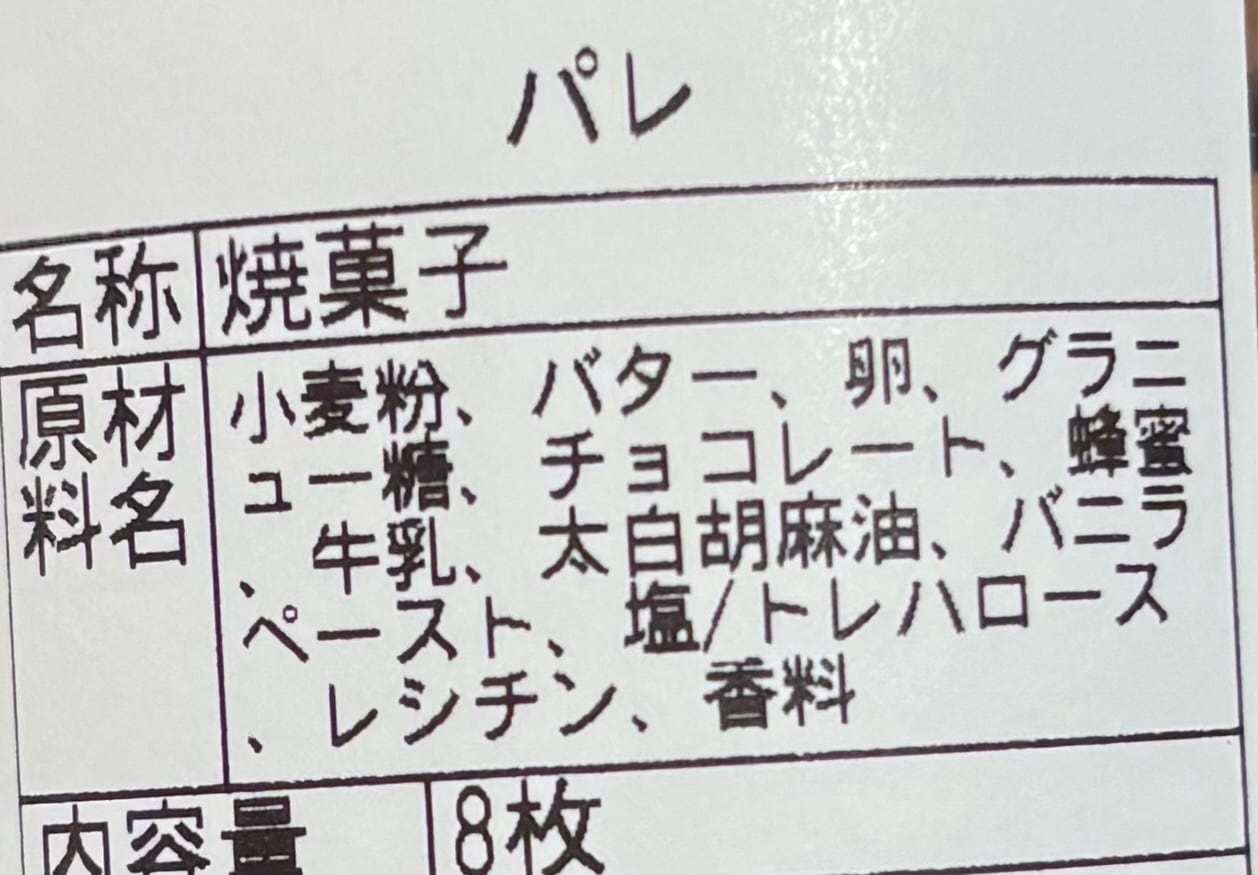 パレ
名称 焼菓子
原材料名 小麦粉、バター、卵、グラニ
ュー糖、チョコレート、蜂蜜
、牛乳、太白胡麻油、バニラ
ペースト、塩/トレハロース
、レシチン、香料
内容量 8枚